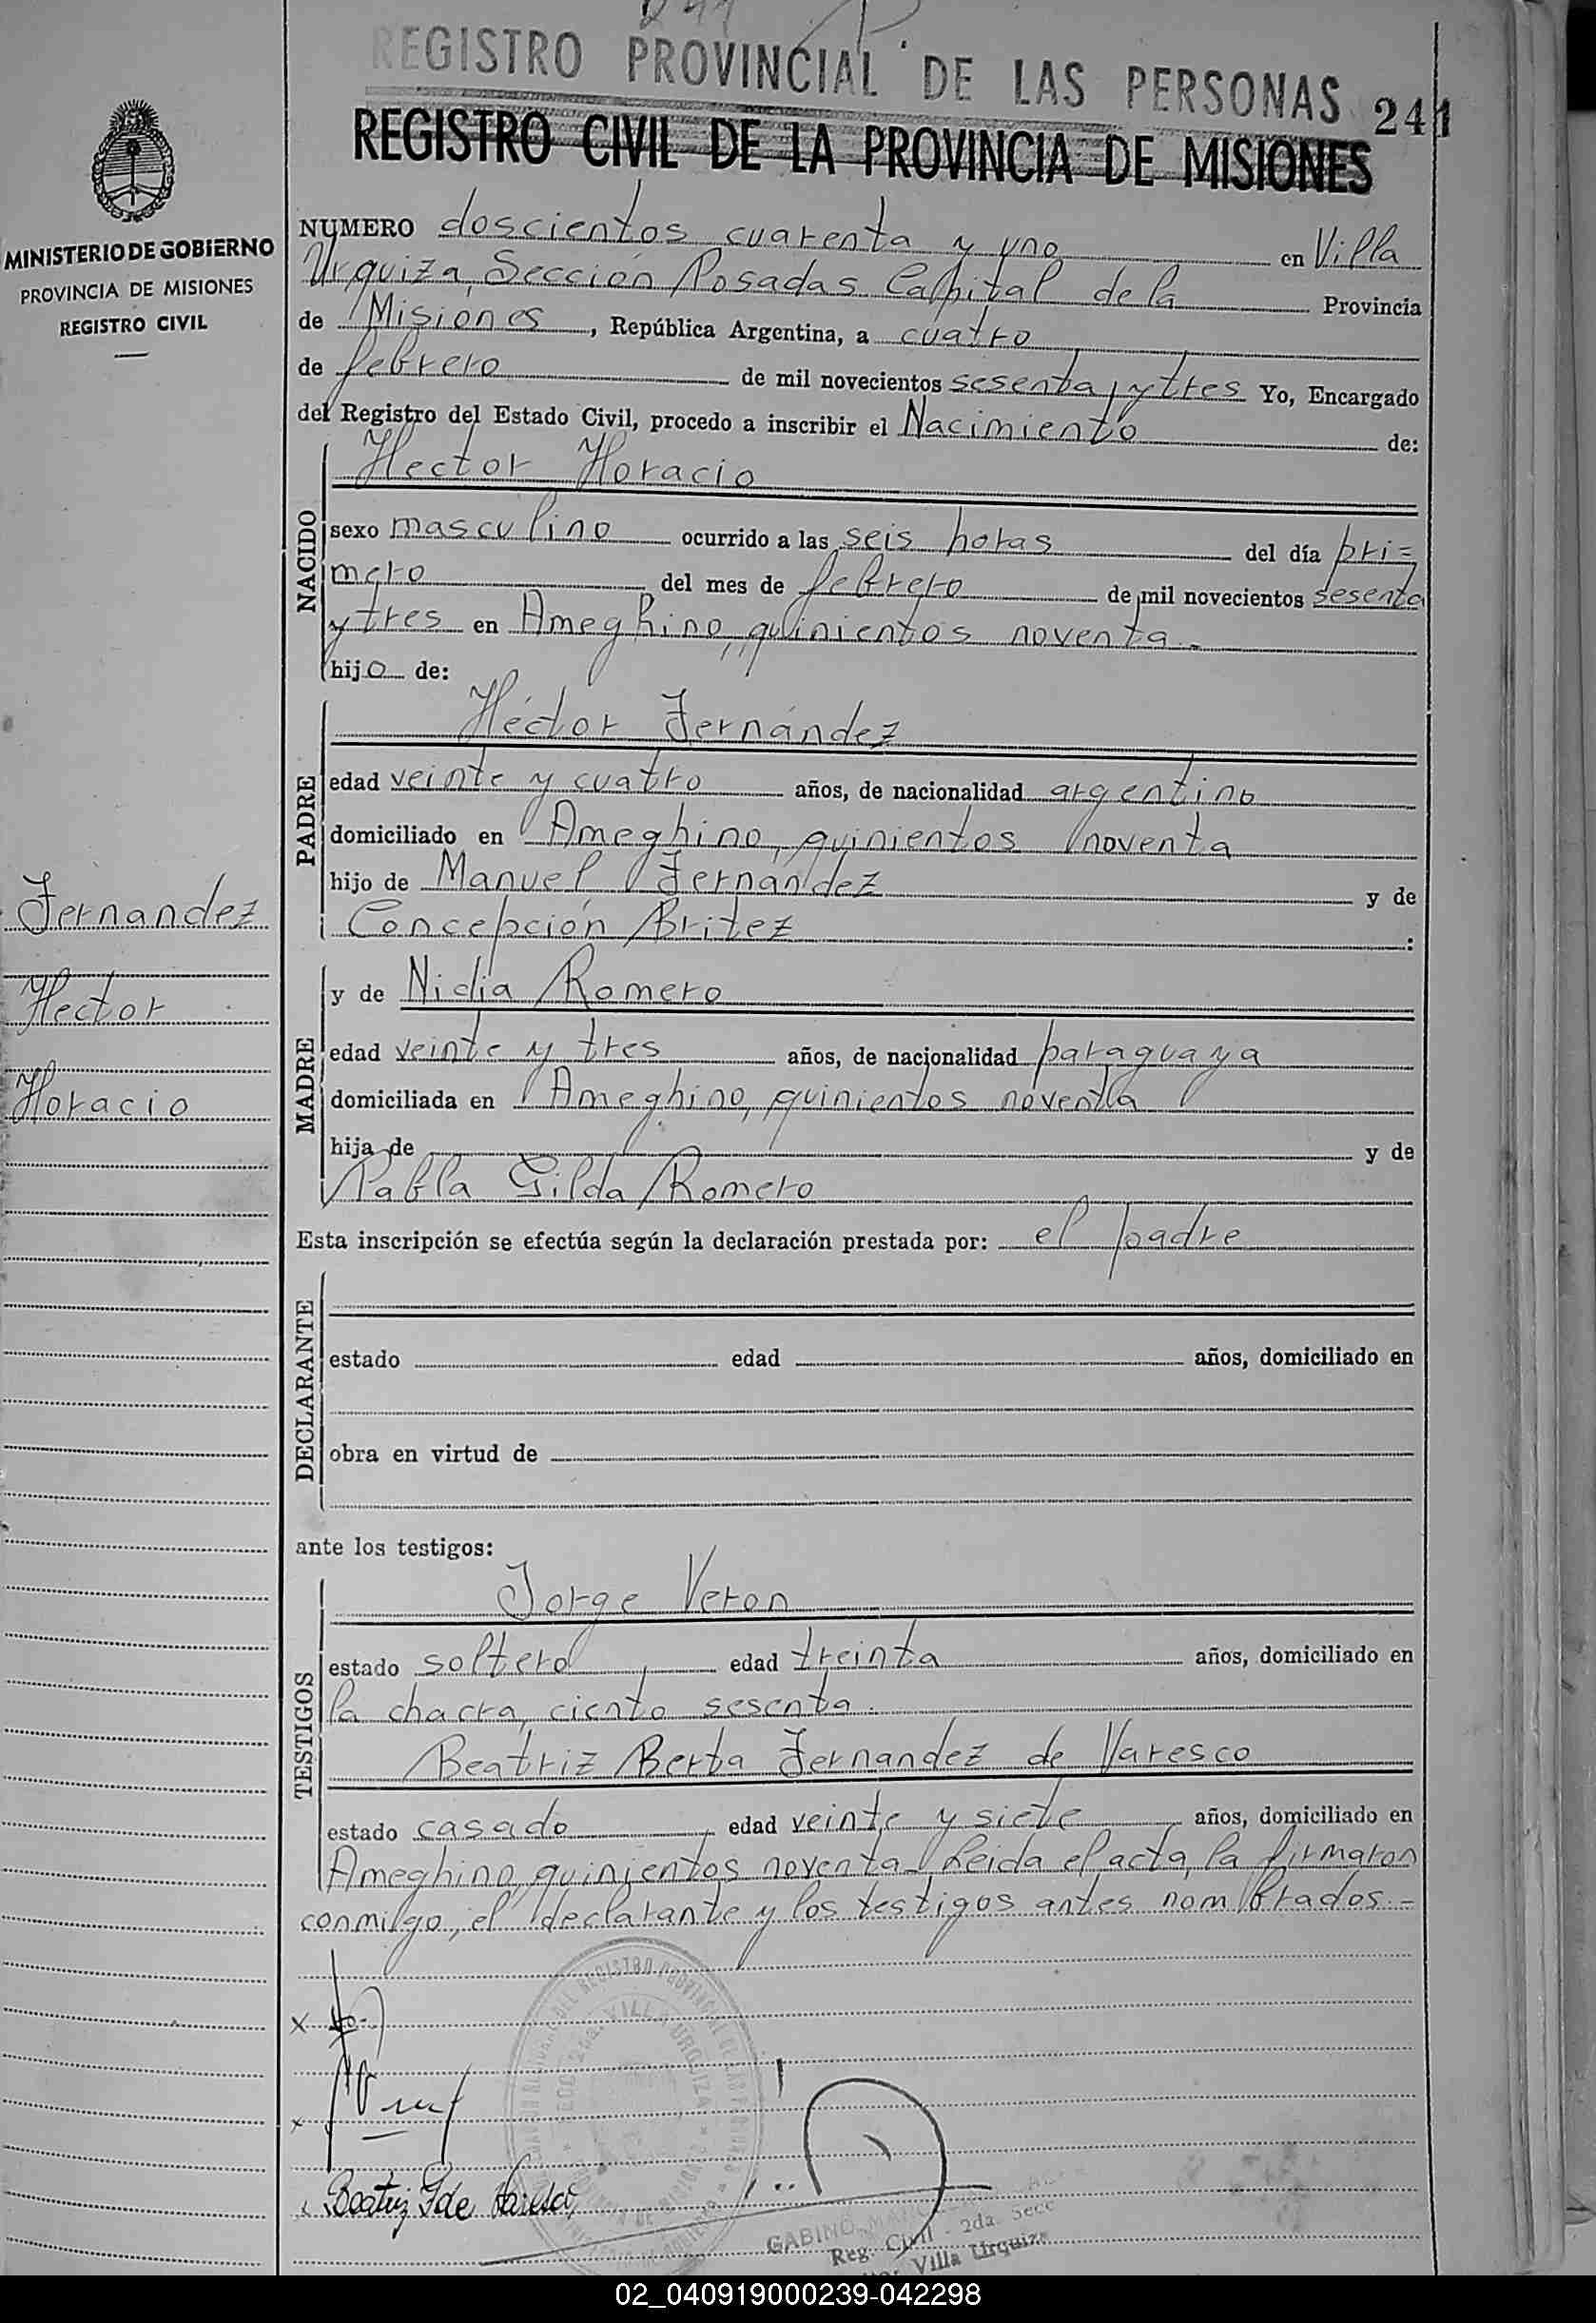 241
REGISTRO PROVINCIAL DE LAS PERSONAS
241
REGISTRO CIVIL DE LA PROVINCIA DE MISIONES
MINISTERIO DE GOBIERNO
PROVINCIA DE MISIONES
REGISTRO CIVIL
NUMERO doscientos cuarenta y uno en Villa
Urquiza, Sección Posadas Capital de la Provincia
de Misiones, República Argentina, a cuatro
de febrero de mil novecientos sesenta y tres Yo, Encargado
del Registro del Estado Civil, procedo a inscribir el Nacimiento de:
NACIDO
Hector Horacio
sexo masculino ocurrido a las seis horas del día pri=
mero del mes de febrero de mil novecientos sesenta
y tres en Ameghino, quinientos noventa.-
hijo de:
PADRE
Héctor Fernández
edad veinte y cuatro años, de nacionalidad argentino
domiciliado en Ameghino, quinientos noventa
hijo de Manuel Fernández y de
Concepción Britez :
Fernandez
Hector
Horacio
MADRE
y de Nidia Romero
edad veinte y tres años, de nacionalidad paraguaya
domiciliada en Ameghino, quinientos noventa
hija de y de
Pabla Gilda Romero
Esta inscripción se efectúa según la declaración prestada por: el padre
DECLARANTE
estado edad años, domiciliado en
obra en virtud de
ante los testigos:
TESTIGOS
Jorge Veron
estado soltero, edad treinta años, domiciliado en
la chacra, ciento sesenta.
Beatriz Berta Fernandez de Varesco
estado casado, edad veinte y siete años, domiciliado en
Ameghino, quinientos noventa- Leida el acta, la firmaron
conmigo, el declarante y los testigos antes nombrados.-
x
x
x Beatriz F de Varesco
GABINO
Reg. Civil - 2da. Secc
Villa Urquiza
02_040919000239-042298